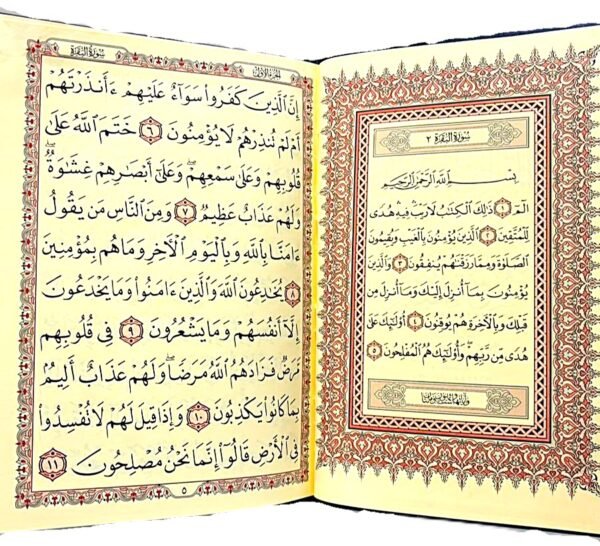 سورة البقرة ٢
بسم الله الرحمن الرحيم
الٓمٓ ١ ذَٰلِكَ ٱلْكِتَٰبُ لَا رَيْبَ فِيهِ هُدًى
لِّلْمُتَّقِينَ ٢ ٱلَّذِينَ يُؤْمِنُونَ بِٱلْغَيْبِ وَيُقِيمُونَ
ٱلصَّلَوٰةَ وَمِمَّا رَزَقْنَٰهُمْ يُنفِقُونَ ٣ وَٱلَّذِينَ
يُؤْمِنُونَ بِمَآ أُنزِلَ إِلَيْكَ وَمَآ أُنزِلَ مِن
قَبْلِكَ وَبِٱلْأَخِرَةِ هُمْ يُوقِنُونَ ٤ أُو۟لَٰٓئِكَ عَلَىٰ
هُدًى مِّن رَّبِّهِمْ وَأُو۟لَٰٓئِكَ هُمُ ٱلْمُفْلِحُونَ ٥
الجزء الأول
سورة البقرة
إِنَّ ٱلَّذِينَ كَفَرُوا۟ سَوَآءٌ عَلَيْهِمْ ءَأَنذَرْتَهُمْ
أَمْ لَمْ تُنذِرْهُمْ لَا يُؤْمِنُونَ ٦ خَتَمَ ٱللَّهُ عَلَىٰ
قُلُوبِهِمْ وَعَلَىٰ سَمْعِهِمْ ۖ وَعَلَىٰٓ أَبْصَٰرِهِمْ غِشَٰوَةٌ ۖ
وَلَهُمْ عَذَابٌ عَظِيمٌ ٧ وَمِنَ ٱلنَّاسِ مَن يَقُولُ
ءَامَنَّا بِٱللَّهِ وَبِٱلْيَوْمِ ٱلْأَخِرِ وَمَا هُم بِمُؤْمِنِينَ
٨ يُخَٰدِعُونَ ٱللَّهَ وَٱلَّذِينَ ءَامَنُوا۟ وَمَا يَخْدَعُونَ
إِلَّآ أَنفُسَهُمْ وَمَا يَشْعُرُونَ ٩ فِى قُلُوبِهِم
مَّرَضٌ فَزَادَهُمُ ٱللَّهُ مَرَضًا ۖ وَلَهُمْ عَذَابٌ أَلِيمٌۢ
بِمَا كَانُوا۟ يَكْذِبُونَ ١٠ وَإِذَا قِيلَ لَهُمْ لَا تُفْسِدُوا۟
فِى ٱلْأَرْضِ قَالُوٓا۟ إِنَّمَا نَحْنُ مُصْلِحُونَ ١١
٥